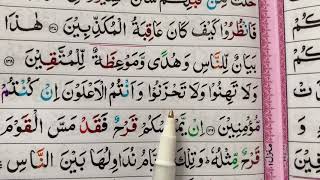 فَانْظُرُوْا كَيْفَ كَانَ عَاقِبَةُ الْمُكَذِّبِيْنَ ﴿۱۳۷﴾ هٰذَا
بَيَانٌ لِّلنَّاسِ وَهُدًى وَّمَوْعِظَةٌ لِّلْمُتَّقِيْنَ ﴿۱۳۸﴾
وَلَا تَهِنُوْا وَلَا تَحْزَنُوْا وَاَنْتُمُ الْاَعْلَوْنَ اِنْ كُنْتُمْ
مُّؤْمِنِيْنَ ﴿۱۳۹﴾ اِنْ يَّمْسَسْكُمْ قَرْحٌ فَقَدْ مَسَّ الْقَوْمَ
قَرْحٌ مِّثْلُهٗ وَتِلْكَ الْاَيَّامُ نُدَاوِلُهَا بَيْنَ النَّاسِ